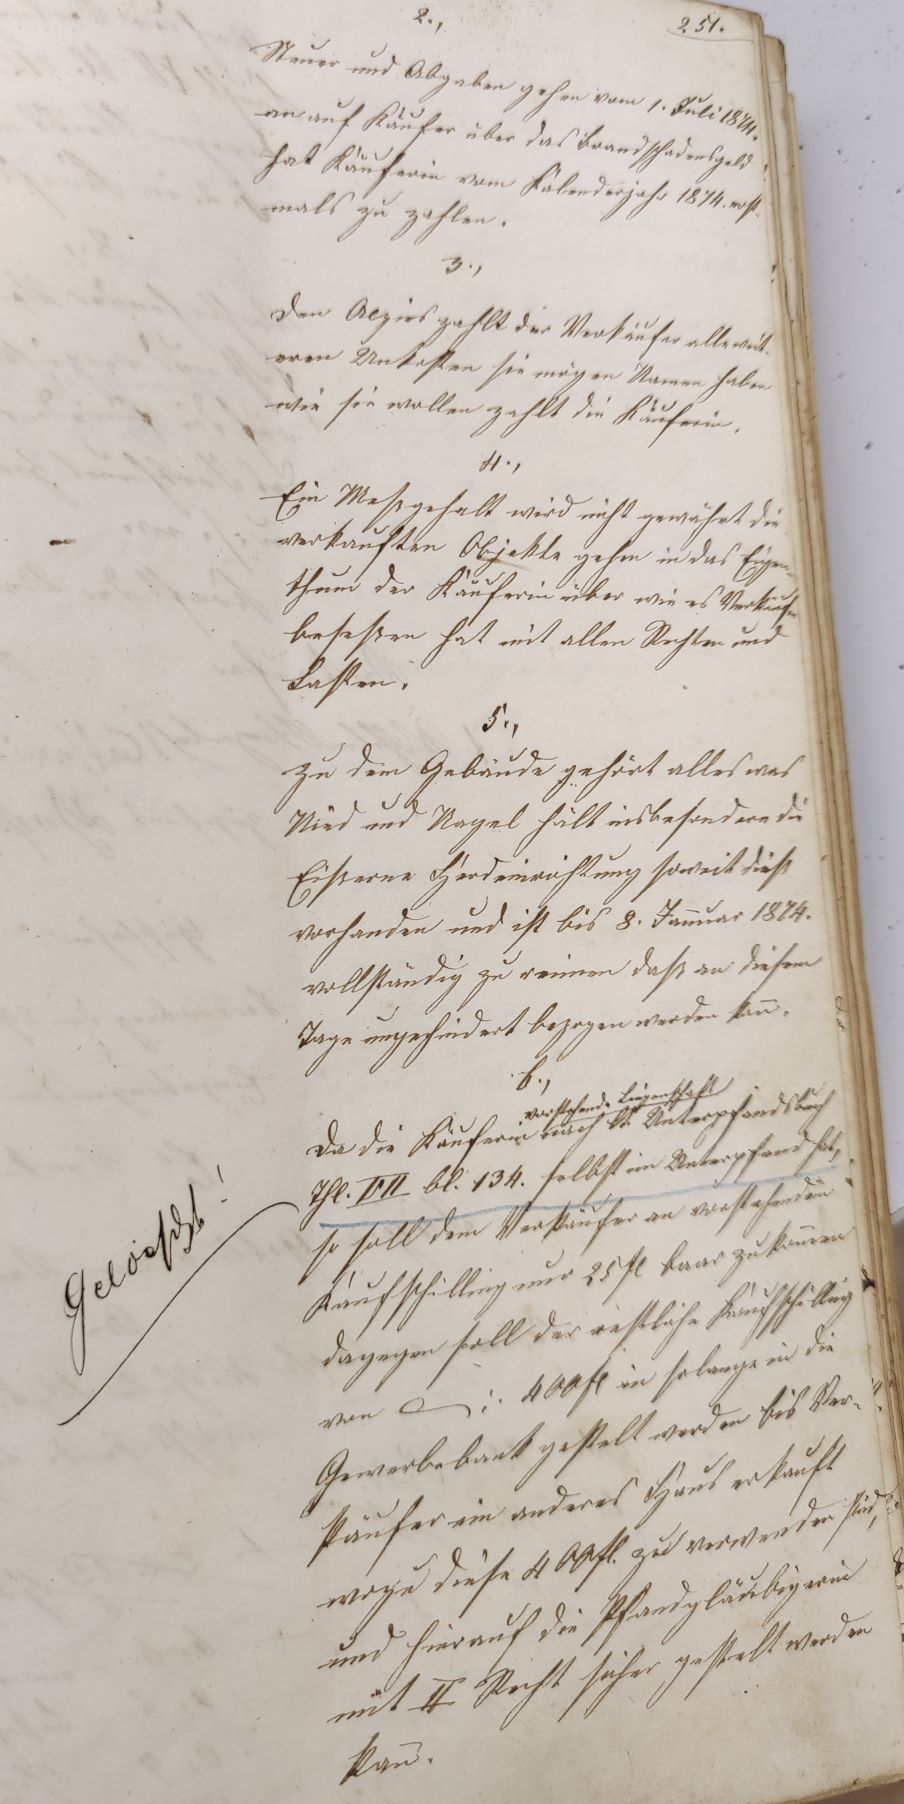 251.
2.,
Steuer und Abgaben gehen vom 1. Juli 1874.
an auf Käufer über das Brandschadensgeld
hat Käuferin vom Kalenderjahr 1874. erst-
mals zu zahlen.
3.,
Den Accis zahlt der Verkäufer alle weit-
eren Unkosten sie mögen Namen haben
wie sie wollen zahlt die Käuferin.
4.,
Ein Meßgehalt wird nicht gewährt die
verkauften Objekte gehen in das Eigen-
thum der Käuferin über wie es Verkäufer
beseßen hat mit allen Rechten und
Lasten.
5.,
Zu dem Gebäude gehört alles was
Nied und Nagel hält insbesondere die
Eiserne Herdeinrichtung soweit dieß
vorhanden und ist bis 8. Januar 1874.
vollständig zu räumen daß an diesem
Tage ungehindert bezogen werden kann.
6.,
vorstehende Liegenschaft
Da die Käuferin nach Unterpfandsbuch
Thl. VII bl. 134. selbst im Unterpfand hat,
so soll dem Verkäufer an vorstehenden
Kaufschilling nur 25 fl baar zukommen
dagegen soll der restliche Kaufschilling
von 400 fl in solange in die
Gewerbebank gestelt werden bis Ver-
käufer ein anderes Haus erkauft
wozu diese 400 fl. zu verwenden sind,
und hierauf die Pfandgläubigerin
mit II Recht sicher gestelt werden
kann.
Gelöscht!